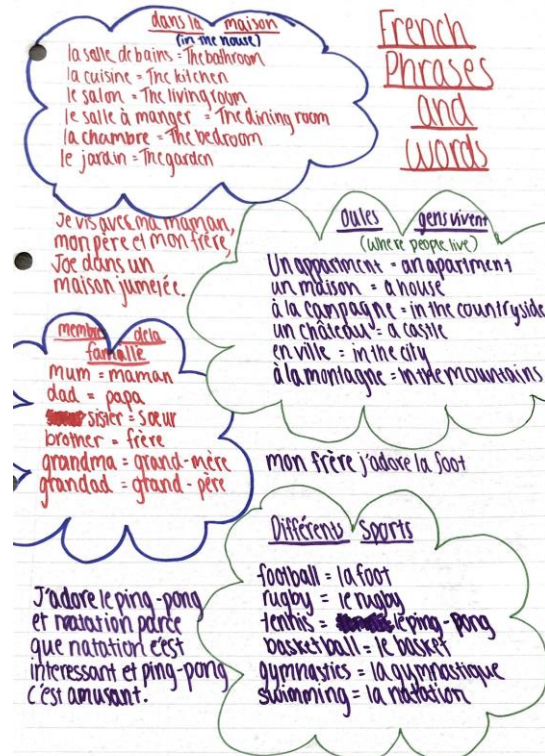 dans la maison
(in the house)
la salle de bains = The bathroom
la cuisine = The kitchen
le salon = The living room
le salle à manger = The dining room
la chambre = The bedroom
le jardin = The garden
French
Phrases
and
words
Je vis avec ma maman,
mon père et mon frère,
Joe dans un
maison jumelée.
Ou les gens vivent
(where people live)
Un appartment = an apartment
un maison = a house
à la campagne = in the countryside
un château = a castle
en ville = in the city
à la montagne = in the mountains
membre de la
famalle
mum = maman
dad = papa
sister = sœur
brother = frère
grandma = grand-mère
grandad = grand-père
mon frère j'adore la foot
Différents Sports
football = la foot
rugby = le rugby
tennis = le ping-pong
basketball = le basket
gymnastics = la gymnastique
swimming = la natation
J'adore le ping-pong
et natation parce
que natation c'est
interessant et ping-pong
c'est amusant.